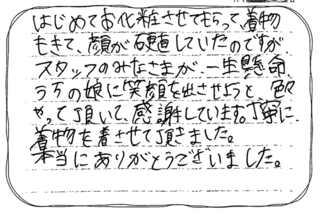 はじめてお化粧させてもらって、着物
もきて、顔が硬直していたのですが、
スタッフのみなさまが、一生懸命、
うちの娘に笑顔を出させようと、色々
やって頂いて、感謝しています。丁寧に、
着物を着させて頂きました。
本当にありがとうございました。